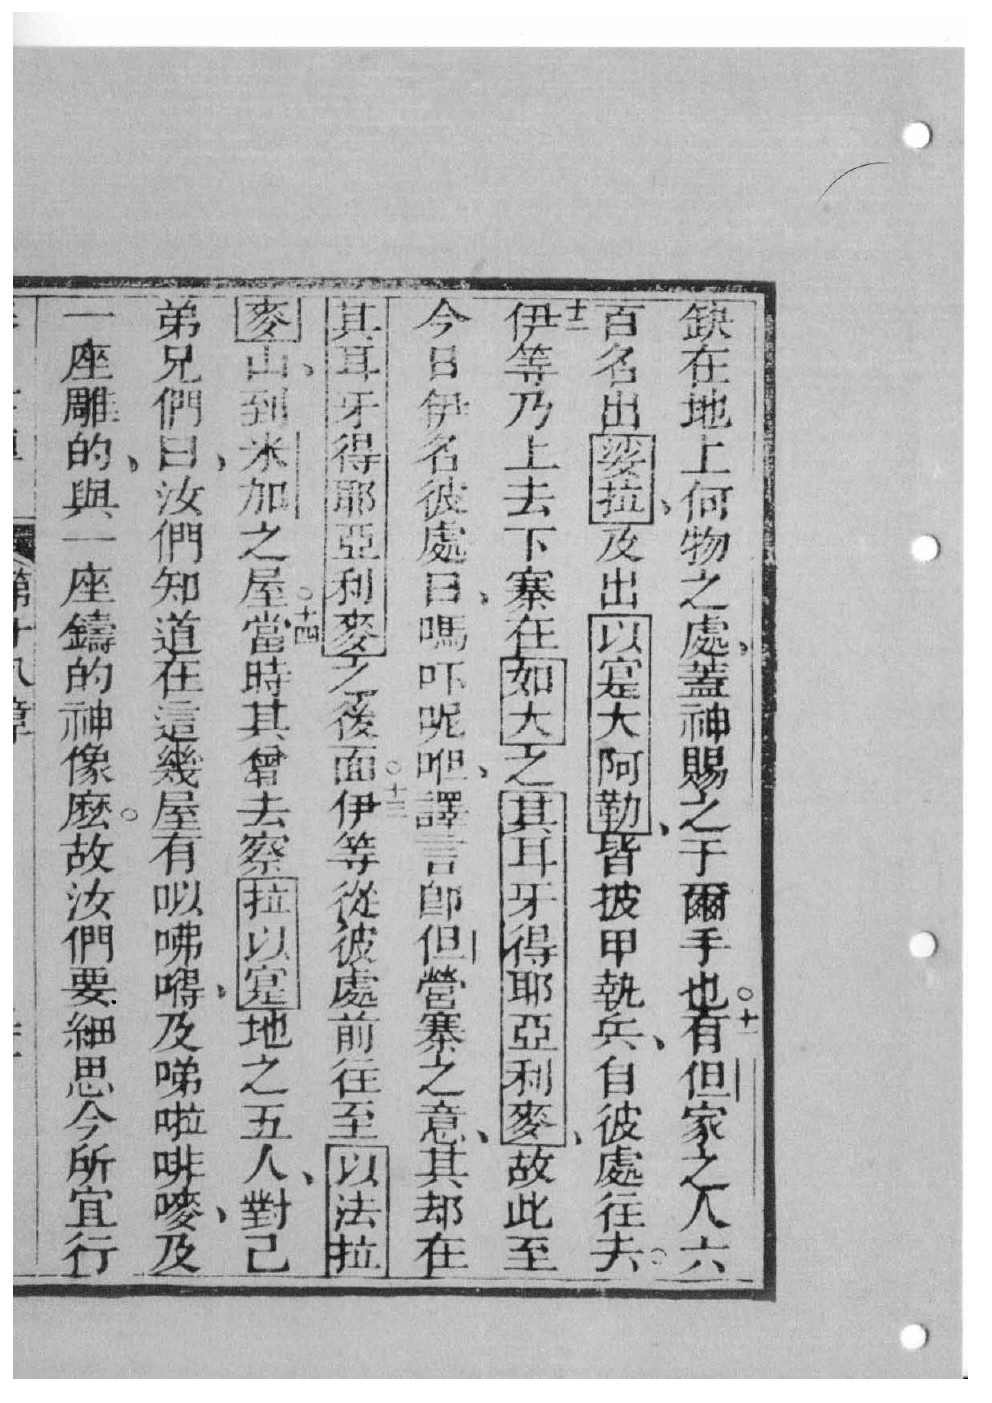 缺在地上何物之處、蓋神賜之于爾手也○十一有但家之人六
百名出娑拉、及出以寔大阿勒、皆披甲執兵、自彼處往去○
十二伊等乃上去下寨在如大之其耳牙得耶亞利麥、故此至
今日伊名彼處曰、嗎吓呢𠹌、譯言卽但營寨之意、其却在
其耳牙得耶亞利麥之後面○十三伊等從彼處前往至以法拉
麥山、到米加之屋○十四當時其曾去察拉以寔地之五人、對己
弟兄們曰、汝們知道在這幾屋有㕥咈嘚、及㖒啦啡嘜、及
一座雕的、與一座鑄的神像麽○故汝們要細思今所宜行
第十八章